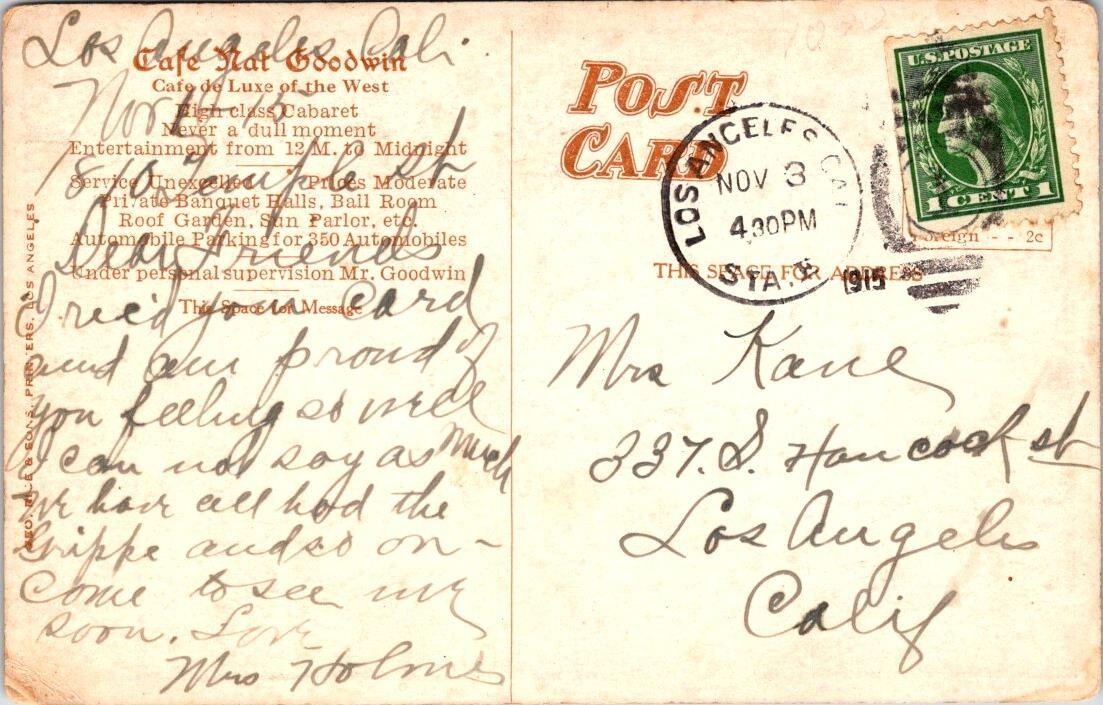 Los Angeles Cali.
Cafe Nat Goodwin
Cafe de Luxe of the West
Nov 1-15
High class Cabaret
Never a dull moment
Entertainment from 12 M. to Midnight
1810 Temple st
Service Unexcelled Prices Moderate
Private Banquet Halls, Ball Room
Roof Garden, Sun Parlor, etc.
Automobile Parking for 350 Automobiles
Dear Friends
Under personal supervision Mr. Goodwin
This Space for Message
I rec'd your card
and am proud of
you feeling so well
I can not say as much
we have all had the
Grippe and so on -
come to see me
soon. Love
Mrs Holmes
GEO. RICE & SONS, PRINTERS, LOS ANGELES
POST
CARD
LOS ANGELES CAL
NOV 3
4 30PM
STA.
1915
U.S. POSTAGE
1 CENT 1
Foreign - - 2c
THIS SPACE FOR ADDRESS
Mrs Kane
337. S. Hancock st
Los Angeles
Calif